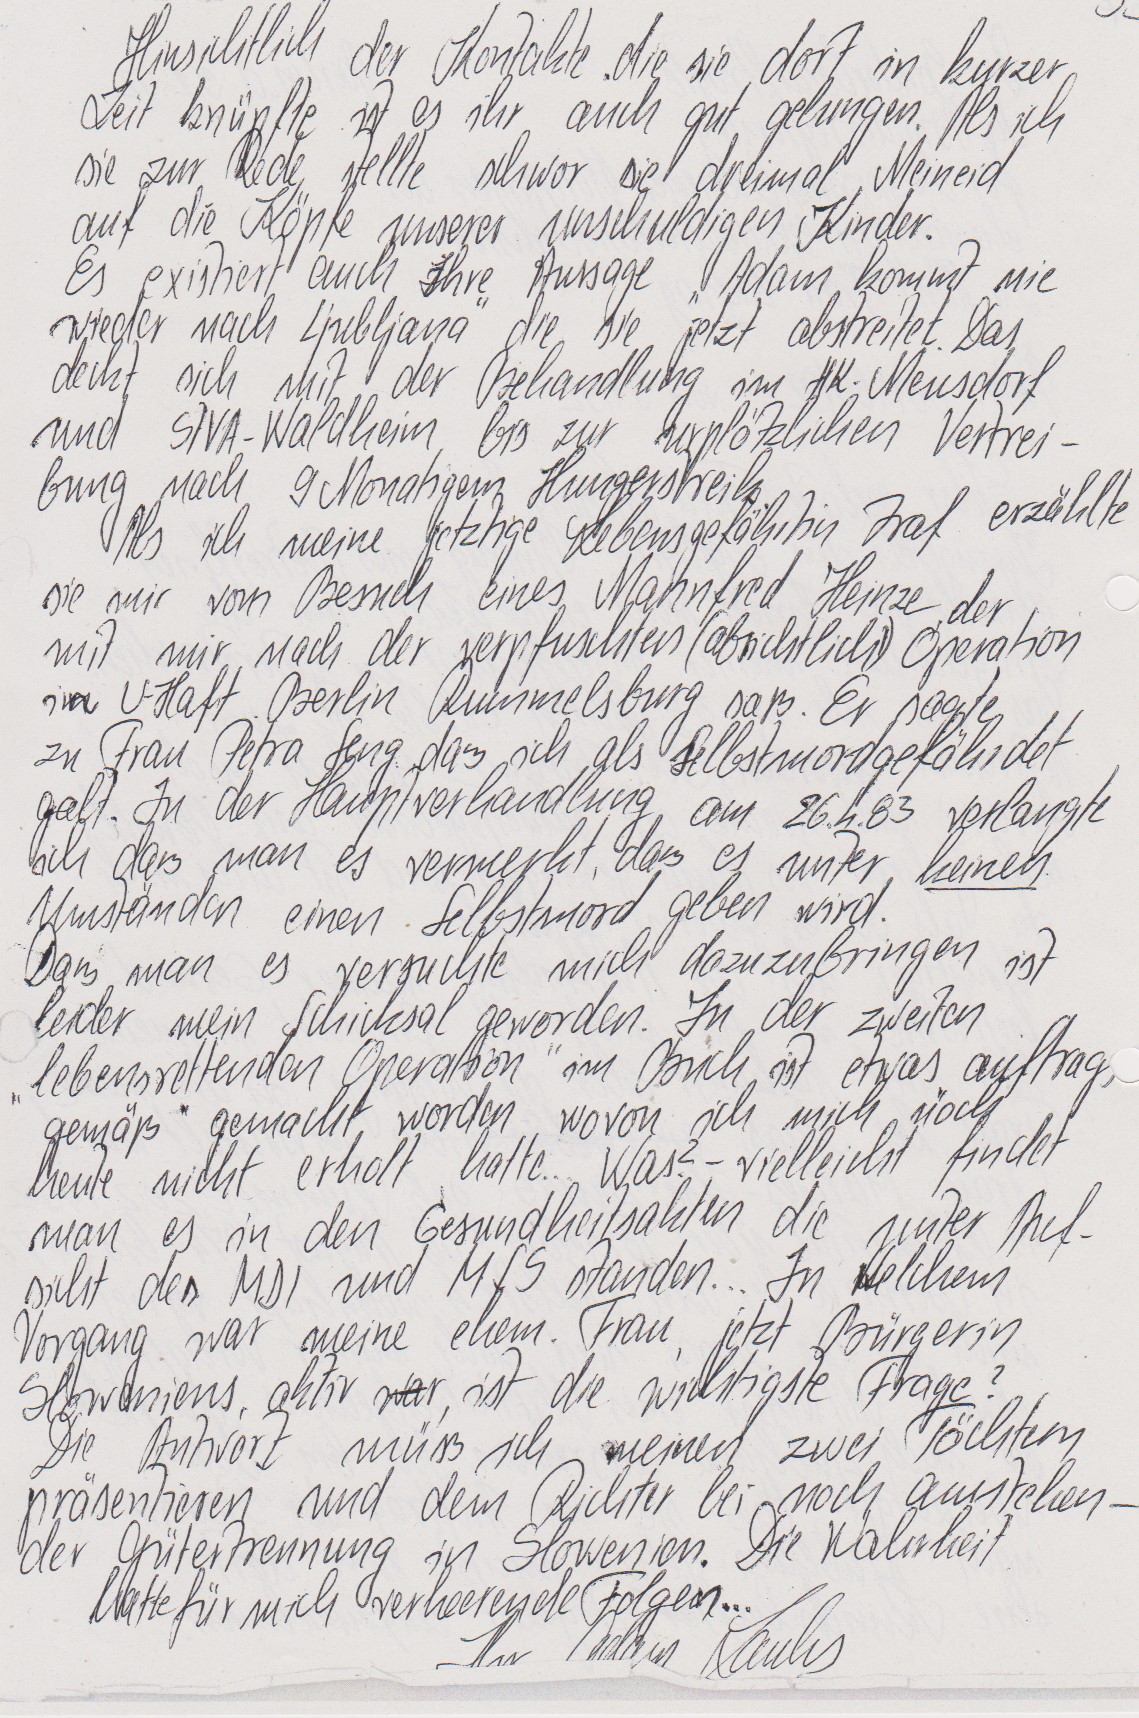 Hinsichtlich der Kontakte die sie dort in kurzer
Zeit knüpfte ist es ihr auch gut gelungen. Als ich
sie zur Rede stellte schwor sie dreimal Meineid
auf die Köpfe unserer unschuldigen Kinder.
Es existiert auch Ihre Aussage „Adam kommt nie
wieder nach Ljubljana" die sie jetzt abstreitet. Das
deckt sich mit der Behandlung im HK. Meusdorf
und STVA-Waldheim bis zur urplötzlichen Vertrei-
bung nach 9 Monatigem Hungerstreik.
Als ich meine jetztige Lebensgefährtin traf erzählte
sie mir vom Besuch eines Mannfred Heinze, der
mit mir nach der verpfuschten (absichtlich) Operation
in U-Haft Berlin Rummelsburg sass. Er sagte
zu Frau Petra Seng dass ich als Selbstmordgefährdet
galt. In der Hauptverhandlung am 26.4.83 verlangte
ich dass man es vermerkt, dass es unter keinen
Umständen einen Selbstmord geben wird.
Dass man es versuchte mich dazuzubringen ist
leider mein Schicksal geworden. In der zweiten
„lebensrettenden Operation" im Buch ist etwas auftrags
gemäß" gemacht worden wovon ich mich noch
heute nicht erholt hatte... Was? - vielleicht findet
man es in den Gesundheitsakten die unter Auf-
sicht des MDI und MfS standen... In Welchem
Vorgang war meine ehem. Frau, jetzt Bürgerin
Sloweniens, aktiv war, ist die wichtigste Frage?
Die Antwort müss ich meinen zwei Töchtern
präsentieren und dem Richter bei noch anstehen-
der Gütertrennung in Slowenien. Die Wahrheit
hatte für mich verheerende Folgen...
Ihr Adam Lauks